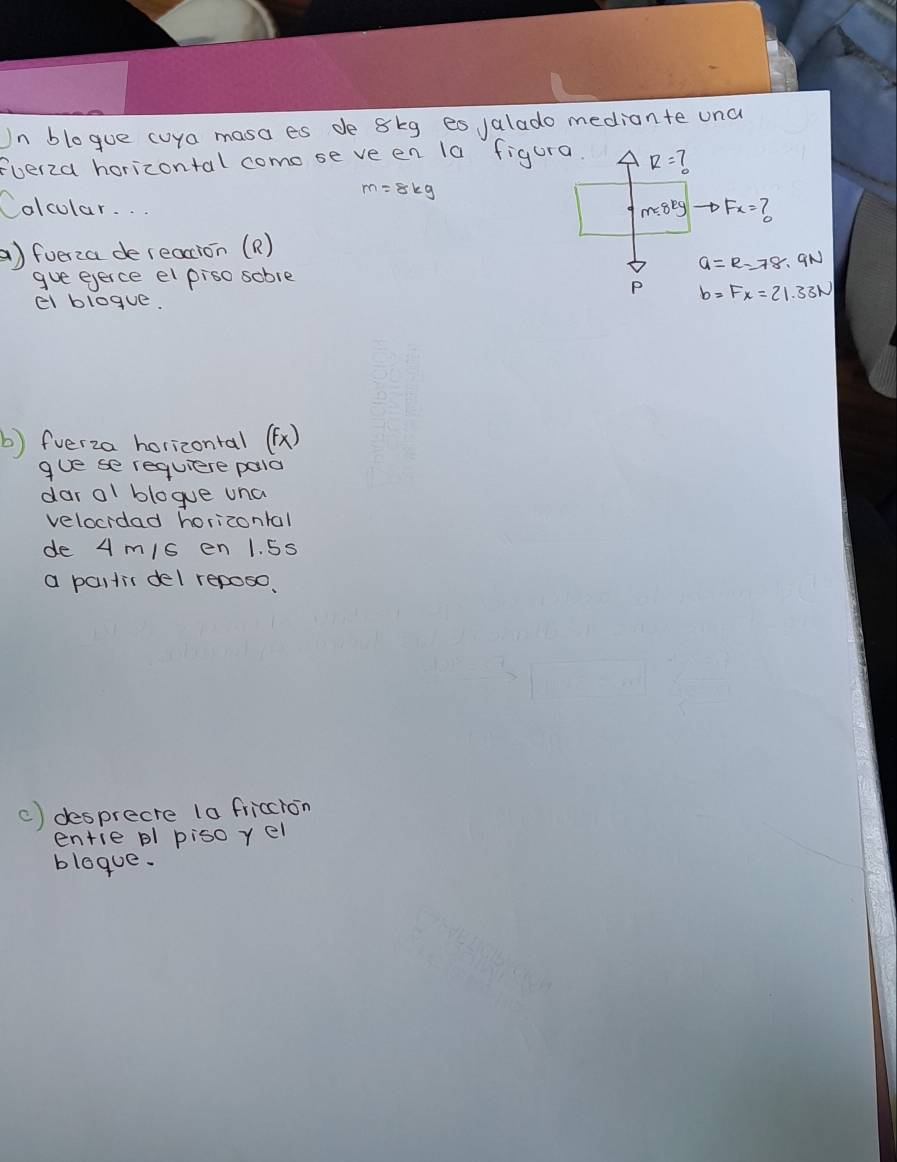 Un bloque cuya masa es de 8kg es jalado mediante una
fuerza horizontal como se ve en la figura.
R=?
m=8kg
Calcular...
m=8kg
Fx=?
a) fuerza de reacción (R)
que ejerce el piso sobre
el bloque.
P
a=R=78.9N
b=Fx=21.33N
b) fuerza horizontal (fx)
que se requiere para
dar al bloque una
velocidad horizontal
de 4 m/s en 1.5s
a partir del reposo.
c) desprecie la fricción
entre el piso y el
bloque.